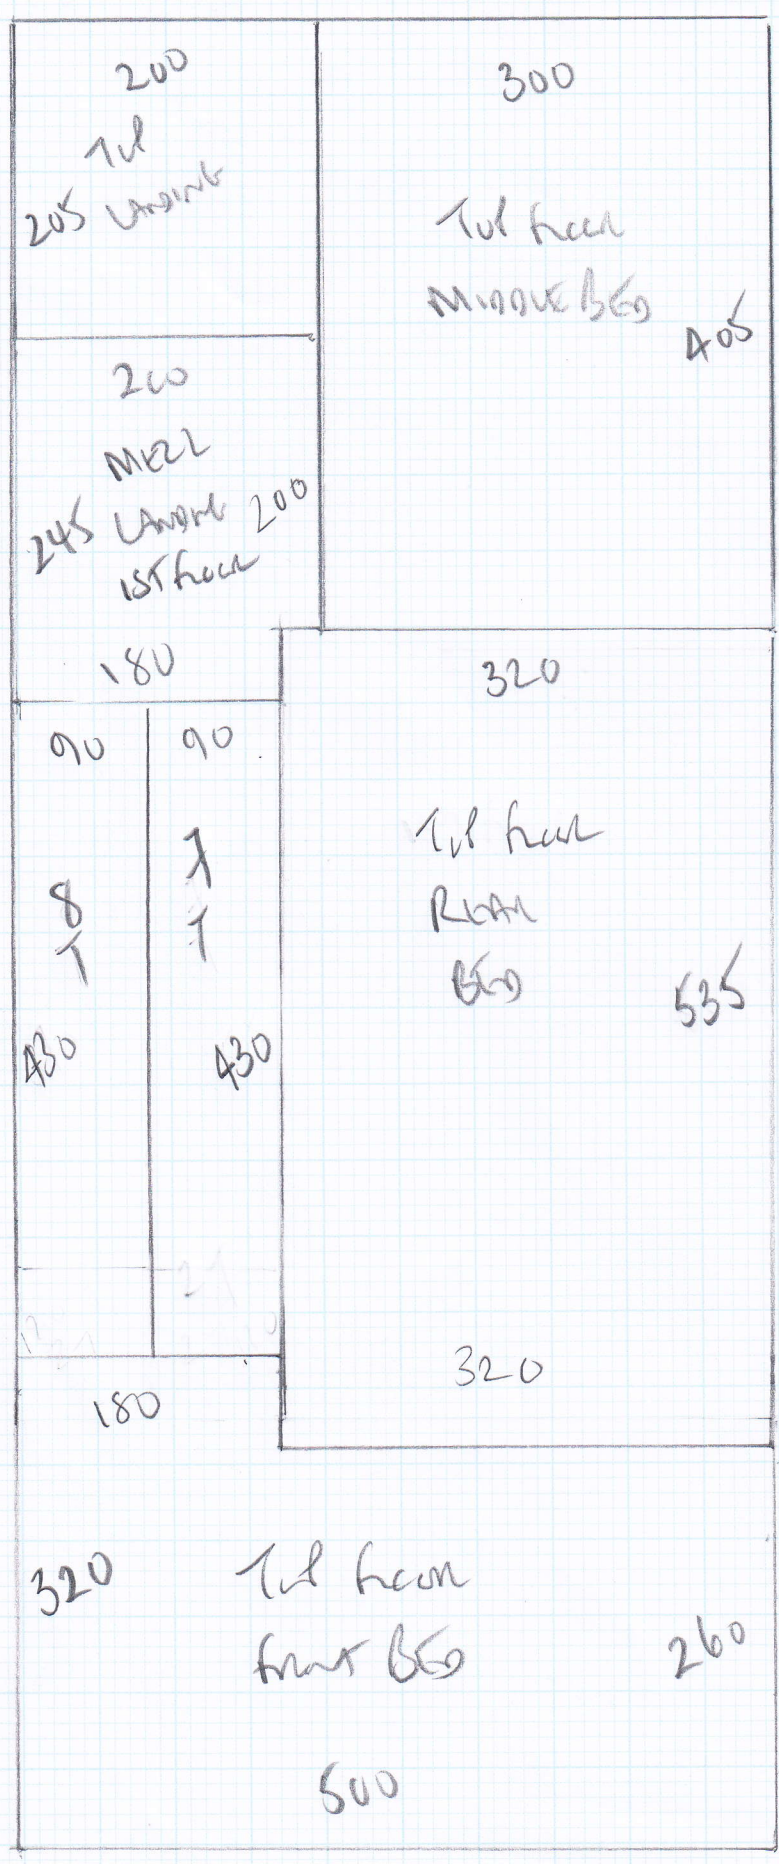 200
Top
LANDING
205
300
Top floor
MIDDLE BED
405
200
MEZZ
LANDING
1ST floor
245
200
180
90
90
8
T
7
T
430
430
320
Top floor
REAR
BED
535
320
180
320
Top floor
front BED
260
500